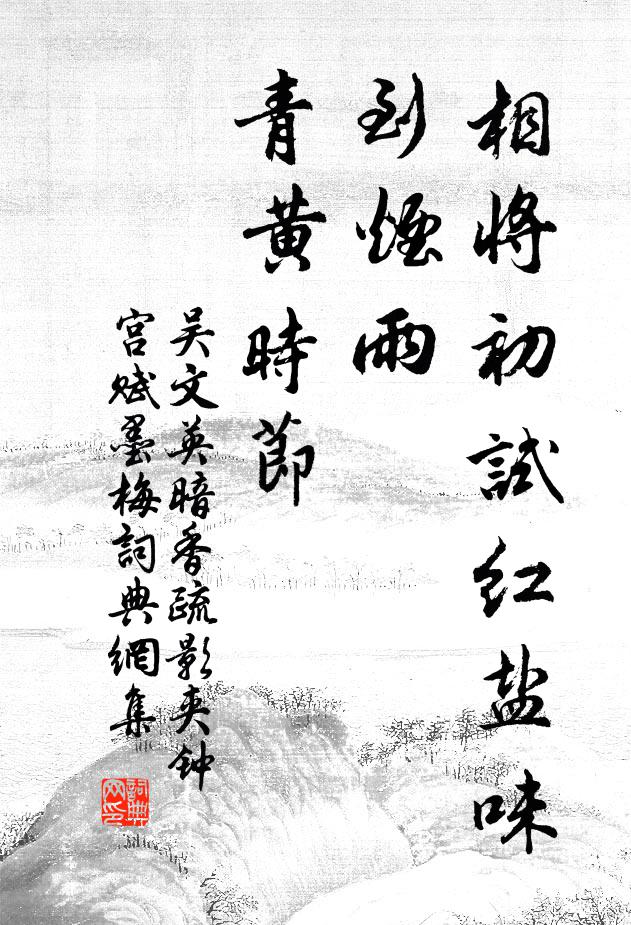 相將初試紅盐味
到煙雨
青黄時節
吴文英暗香疏影夹钟
宫赋墨梅詞典網集
詞典
网印